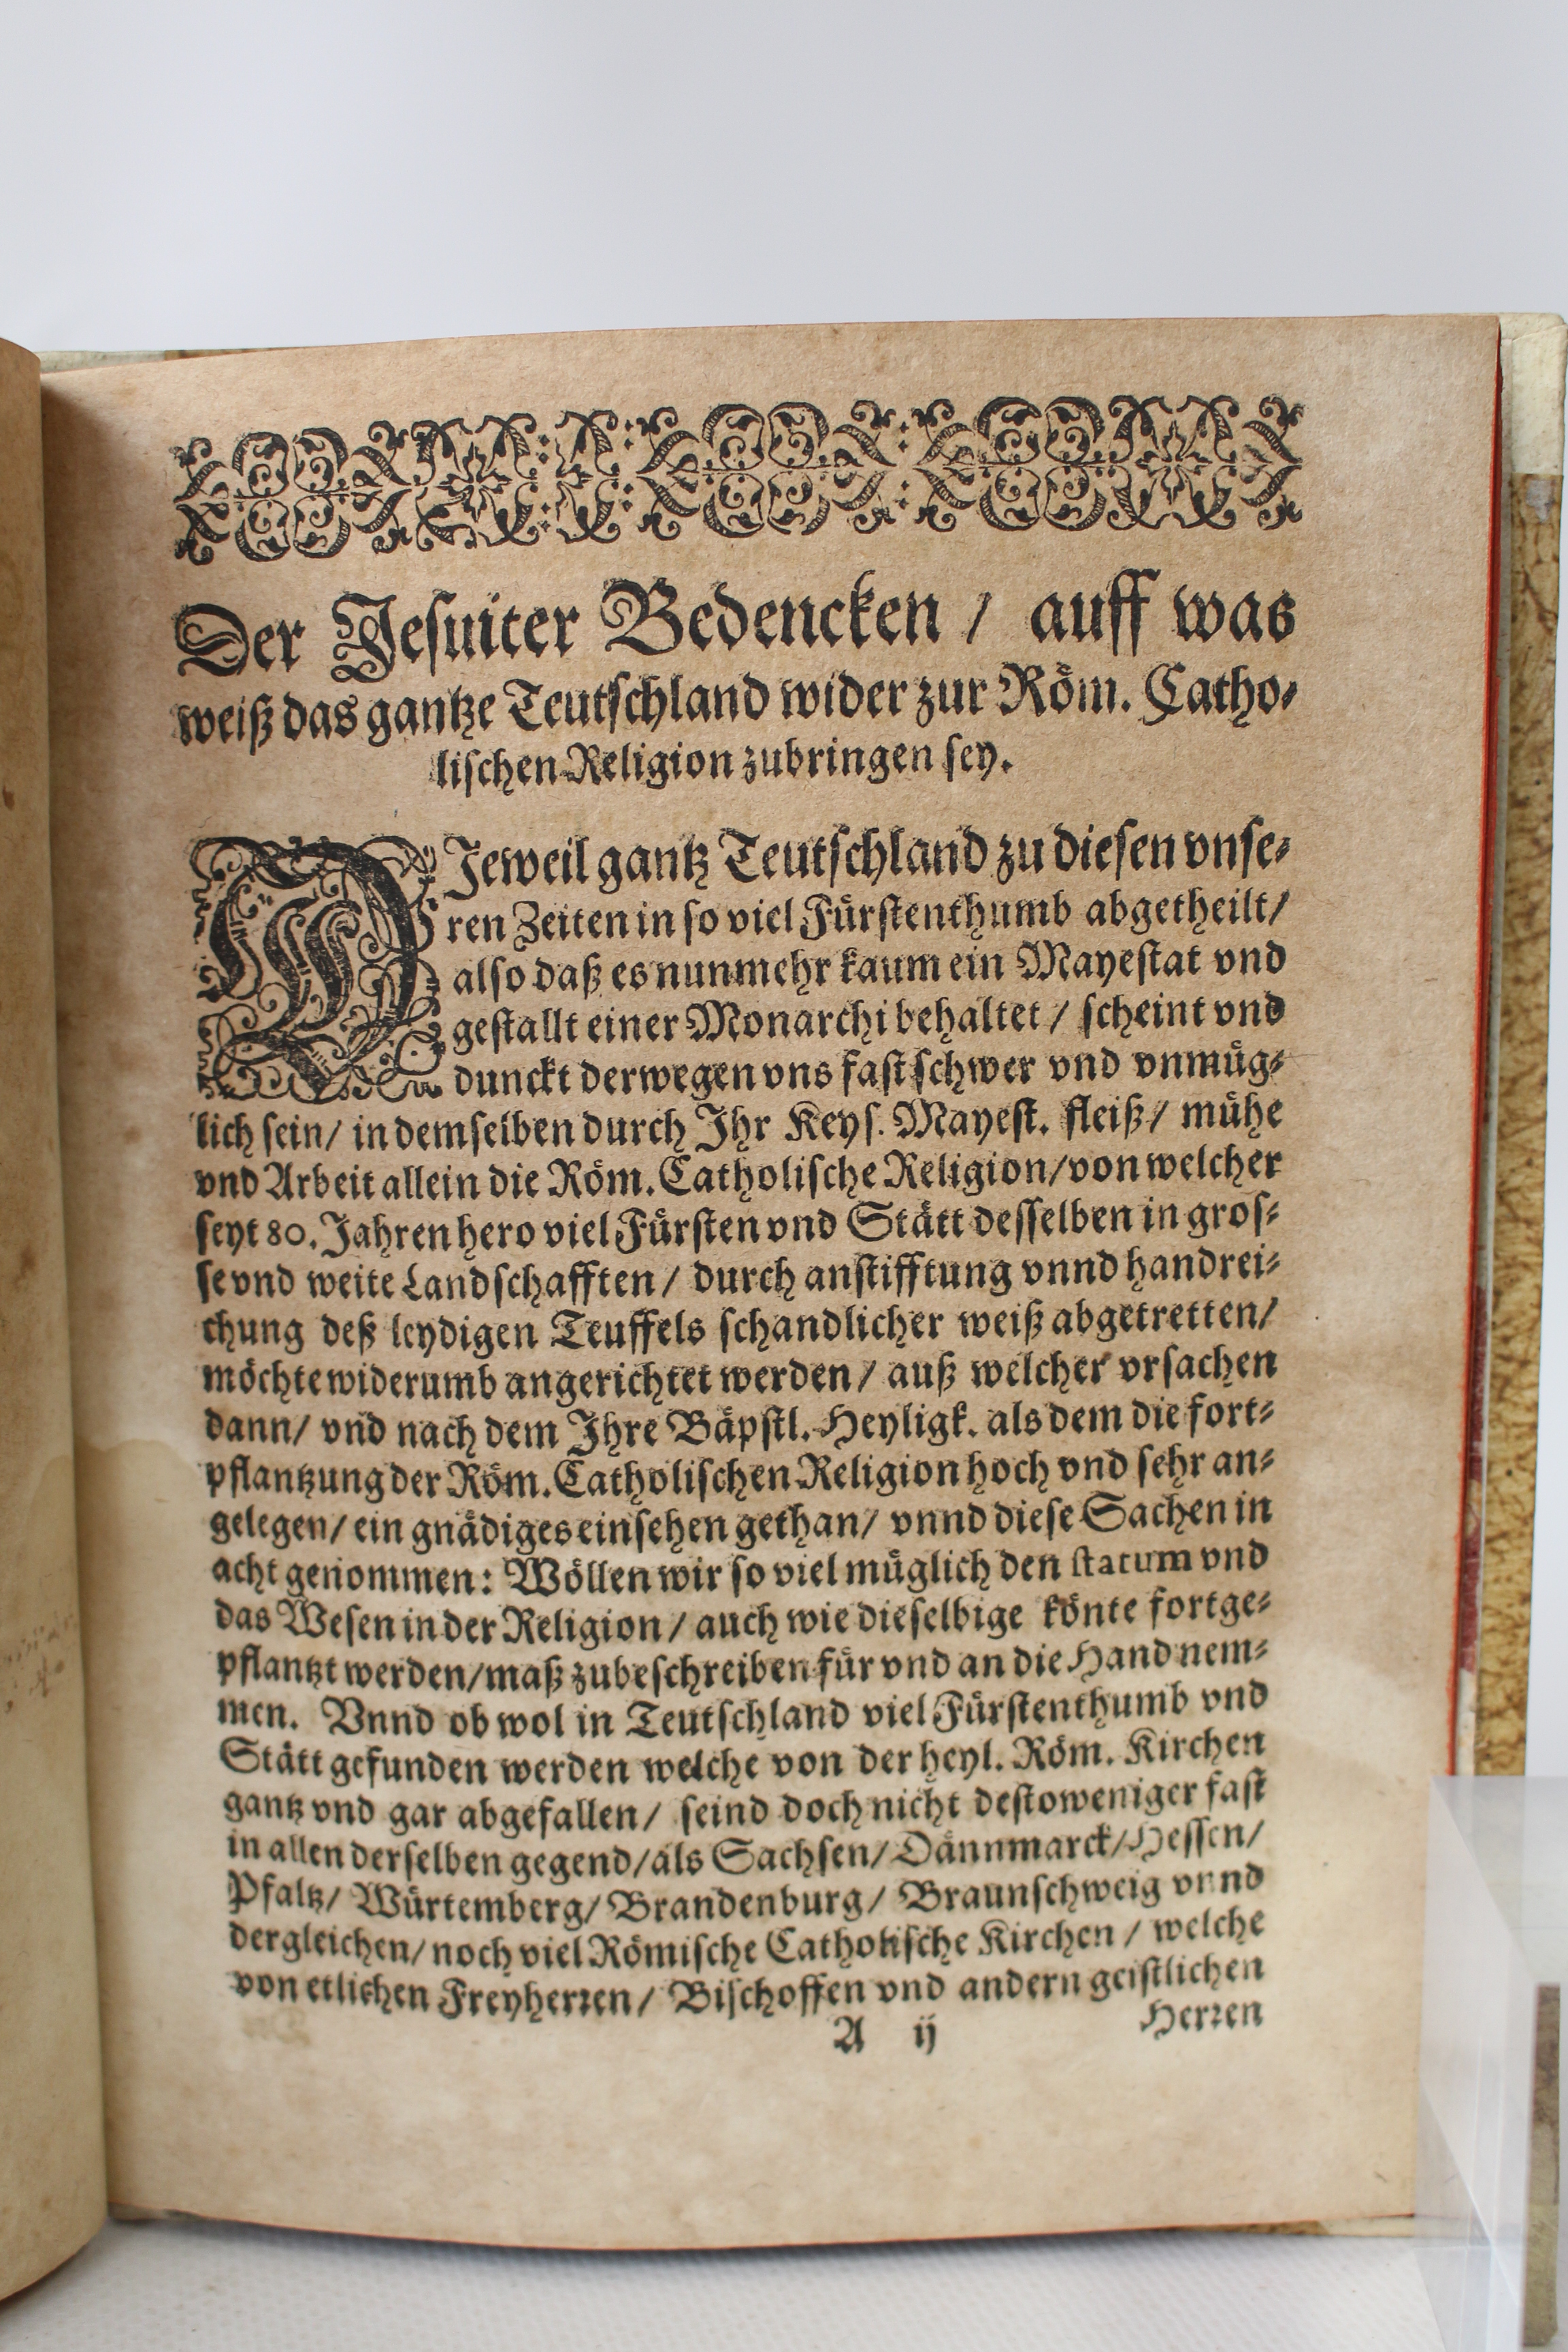 Der Jesuiter Bedencken / auff was
weiß das gantze Teutschland wider zur Röm. Catho-
lischen Religion zubringen sey.
DJeweil gantz Teutschland zu diesen vnse-
ren Zeiten in so viel Fürstenthumb abgetheilt/
also daß es nunmehr kaum ein Mayestat vnd
gestallt einer Monarchi behaltet / scheint vnd
dunckt derwegen vns fast schwer vnd vnmüg-
lich sein/ in demselben durch Jhr Keys. Mayest. fleiß/ mühe
vnd Arbeit allein die Röm. Catholische Religion/von welcher
seyt 80. Jahren hero viel Fürsten vnd Stätt desselben in gros-
se vnd weite Landschafften / durch anstifftung vnnd handrei-
chung deß leydigen Teuffels schandlicher weiß abgetretten/
möchte widerumb angerichtet werden / auß welcher vrsachen
dann/ vnd nach dem Jhre Bäpstl. Heyligk. als dem die fort-
pflantzung der Röm. Catholischen Religion hoch vnd sehr an-
gelegen/ ein gnädiges einsehen gethan/ vnnd diese Sachen in
acht genommen: Wöllen wir so viel müglich den statum vnd
das Wesen in der Religion / auch wie dieselbige könte fortge-
pflantzt werden/maß zubeschreiben für vnd an die Hand nem-
men. Vnnd ob wol in Teutschland viel Fürstenthumb vnd
Stätt gefunden werden welche von der heyl. Röm. Kirchen
gantz vnd gar abgefallen/ seind doch nicht destoweniger fast
in allen derselben gegend/als Sachsen/ Dännmarck/Hessen/
Pfaltz/ Würtemberg/ Brandenburg/ Braunschweig vnnd
dergleichen/ noch viel Römische Catholische Kirchen / welche
von etlichen Freyherren/ Bischoffen vnd andern geistlichen
A ij Herren